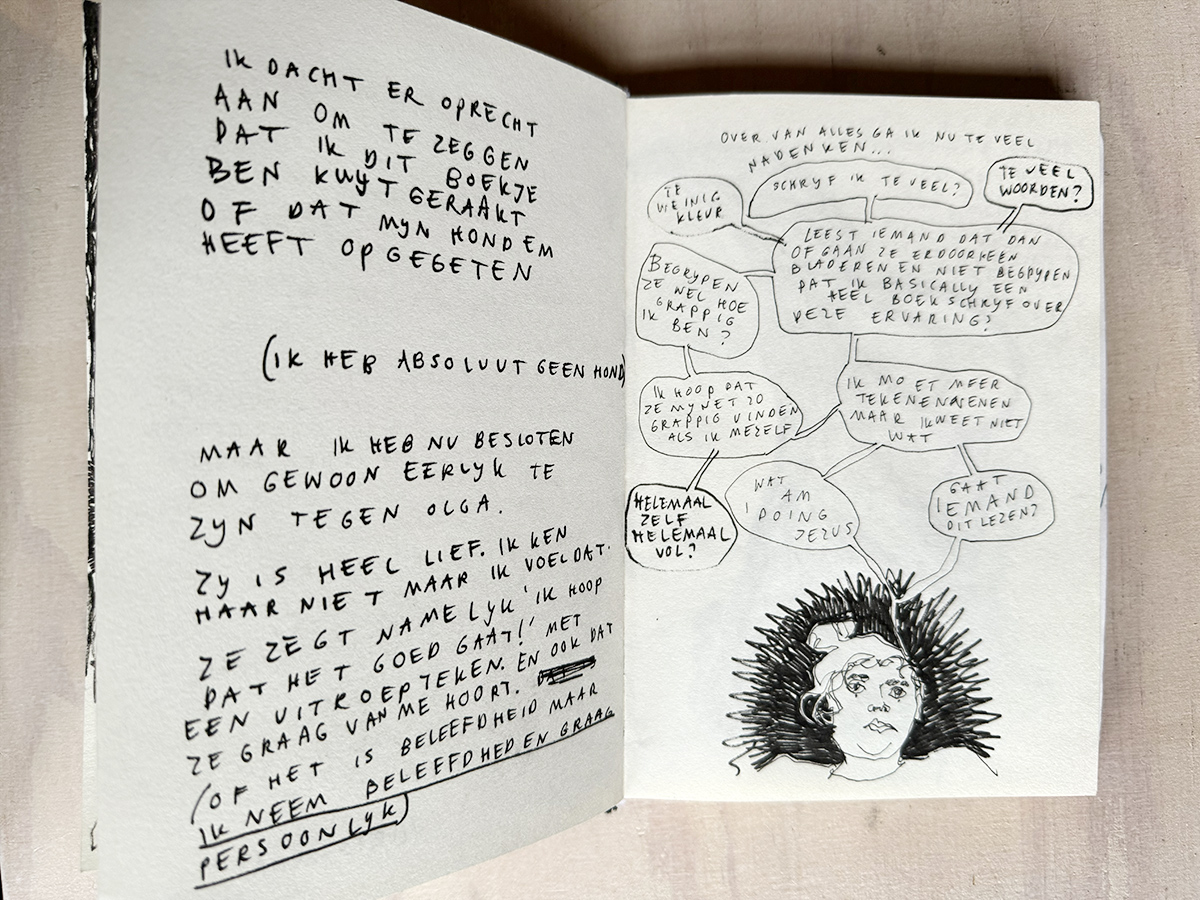 IK DACHT ER OPRECHT
AAN OM TE ZEGGEN
DAT IK DIT BOEKJE
BEN KWYT GERAAKT
OF DAT MYN HOND EM
HEEFT OPGEGETEN
(IK HEB ABSOLUUT GEEN HOND)
MAAR IK HEB NU BESLOTEN
OM GEWOON EERLYK TE
ZYN TEGEN OLGA.
ZY IS HEEL LIEF. IK KEN
HAAR NIET MAAR IK VOEL DAT.
ZE ZEGT NAMELYK 'IK HOOP
DAT HET GOED GAAT!' MET
EEN UITROEPTEKEN. EN OOK DAT
ZE GRAAG VAN ME HOORT.
(OF HET IS BELEEFDHEID MAAR
IK NEEM BELEEFDHEDEN GRAAG
PERSOONLYK)
OVER VAN ALLES GA IK NU TE VEEL
NADENKEN...
TE
WEINIG
KLEUR
SCHRYF IK TE VEEL?
TE VEEL
WOORDEN?
LEEST IEMAND DAT DAN
OF GAAN ZE ERDOORHEEN
BLADEREN EN NIET BEGRYPEN
DAT IK BASICALLY EEN
HEEL BOEK SCHRYF OVER
DEZE ERVARING?
BEGRYPEN
ZE WEL HOE
GRAPPIG
IK BEN?
IK HOOP DAT
ZE MY NET ZO
GRAPPIG VINDEN
ALS IK MEZELF
IK MOET MEER
TEKENEN
MAAR IK WEET NIET
WAT
HELEMAAL
ZELF
HELEMAAL
VOL?
WAT
AM
I DOING
JEZUS
GAAT
IEMAND
DIT LEZEN?